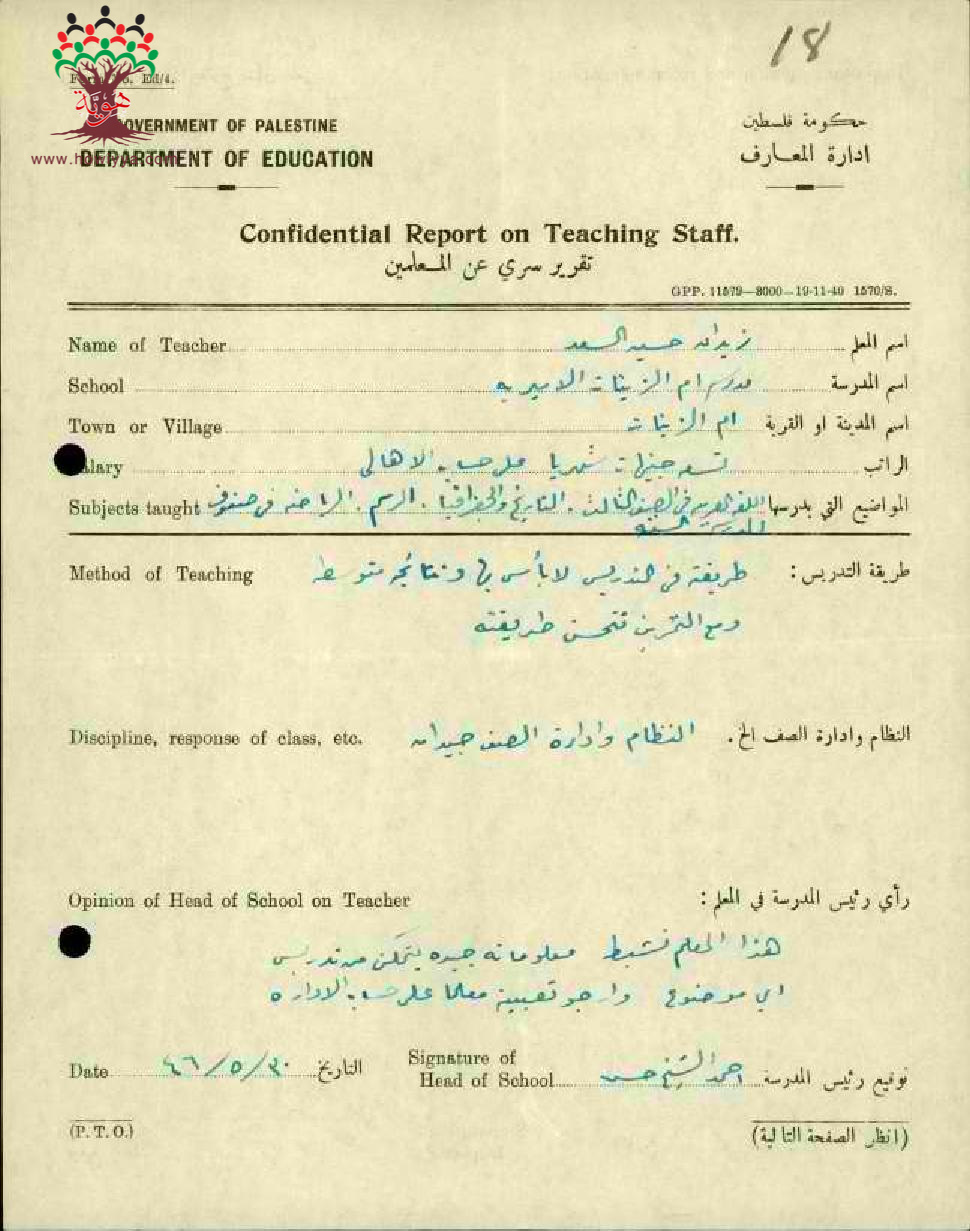 18
هوية
Form No. Ed/4.
www.howiyya.com
GOVERNMENT OF PALESTINE
حكومة فلسطين
DEPARTMENT OF EDUCATION
ادارة المعارف
Confidential Report on Teaching Staff.
تقرير سري عن المعلمين
GPP. 11579—8000—19-11-40 1570/S.
Name of Teacher زيدان حسين السعد اسم المعلم
School مدرسة ام الزينات الاميريه اسم المدرسة
Town or Village ام الزينات اسم المدينة او القرية
Salary تسعه جنيهات شهريا على حساب الاهالي الراتب
Subjects taught اللغه العربيه في الصف الثالث . التاريخ والجغرافيا . الرسم . الرياضه في صفوف المواضيع التي يدرسها
المدرسة
Method of Teaching طريقته في التدريس لا بأس بها ونتائجه متوسطه طريقة التدريس :
ومع التمرين تتحسن طريقته
Discipline, response of class, etc. النظام وادارة الصف جيدان النظام وادارة الصف الخ .
Opinion of Head of School on Teacher رأي رئيس المدرسة في المعلم :
هذا المعلم نشيط معلوماته جيده يتمكن من تدريس
اي موضوع وارجو تعيينه معلما على حساب الاداره
Date ٣٠/٥/٤٦ التاريخ Signature of Head of School احمد الشيخ حسن توقيع رئيس المدرسة
(P. T. O.) (انظر الصفحة التالية)